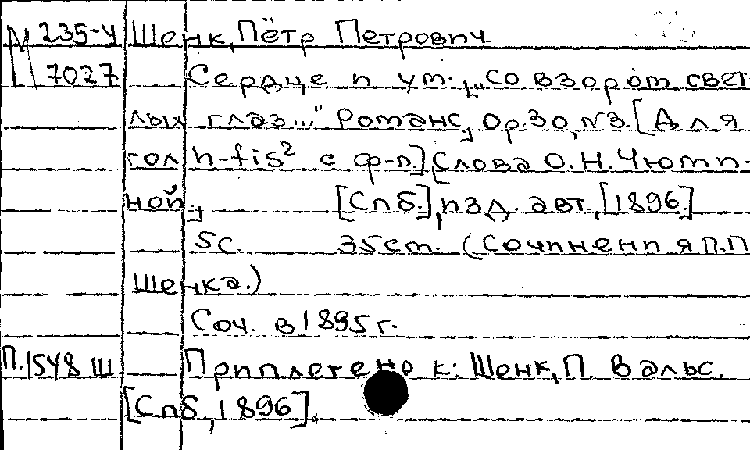 М 235-4 Шенк, Пётр Петрович
7027 Сердце и ум. „Со взором свет
лых глаз..." Романс, Ор. 30, №3. [Для
гол h-fis² с ф-п.] [Слова О.Н. Чюми-
ной.], [Спб.], изд. авт., [1896]
5с. 35cm. (Сочинения П.П
Шенка.)
Соч. в 1895 г.
П.1548 Ш Приплетено к: Шенк, П Вальс.
[Спб, 1896].